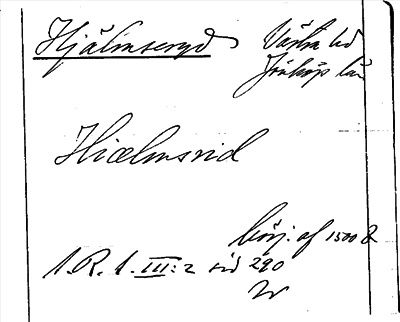 Hjälmseryd Västra hd
Jönköps län
Hiælmsrid
börj. af 1500 t
S.R.S. III:2 sid 290